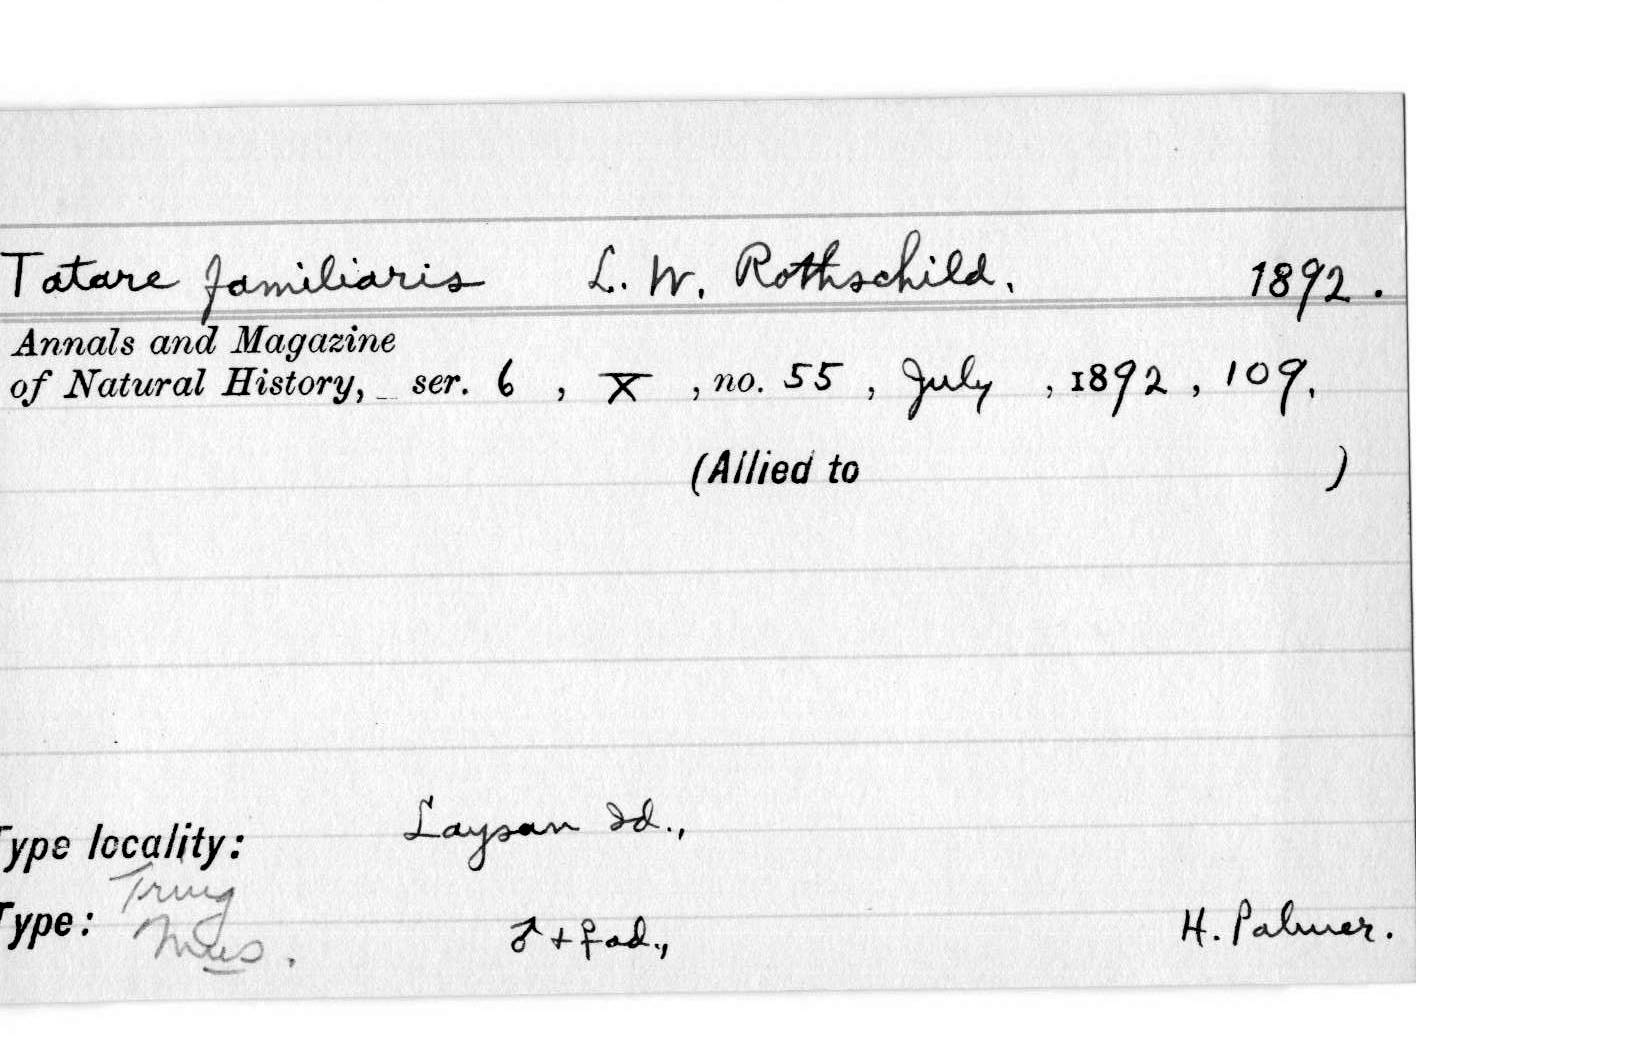 Tatare familiaris L. W. Rothschild. 1892.
Annals and Magazine
of Natural History, ser. 6, X, no. 55, July, 1892, 109.
(Allied to )
Type locality: Laysan Id.,
Tring
Type: Mus. ♂ + ♀ ad., H. Palmer.